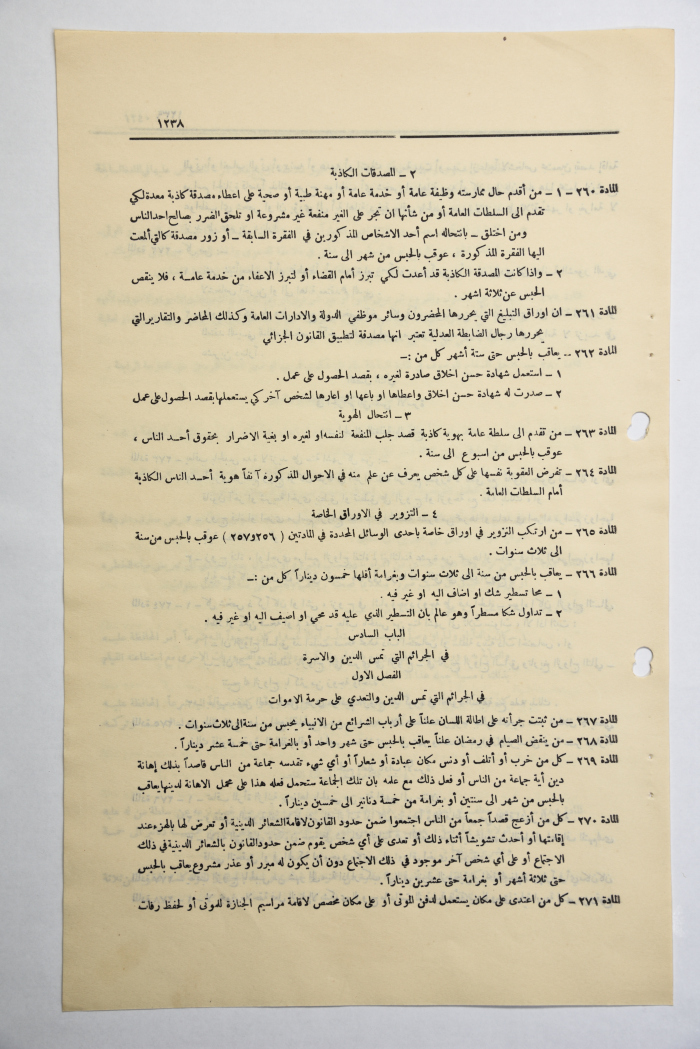 ١٢٣٨
٢ ــ المصدقات الكاذبة
المادة ٢٦٠ ــ ١ ــ من أقدم حال ممارسته وظيفة عامة أو خدمة عامة أو مهنة طبية أو صحية على اعطاء مصدقة كاذبة معدة لكي
تقدم الى السلطات العامة أو من شأنها ان تجر على الغير منفعة غير مشروعة او تلحق الضرر بصالح احد الناس
ومن اختلق ــ بانتحاله اسم أحد الاشخاص المذكورين في الفقرة السابقة ــ أو زور مصدقة كالتي ألمعت
اليها الفقرة المذكورة ، عوقب بالحبس من شهر الى سنة .
٢ ــ واذا كانت المصدقة الكاذبة قد أعدت لكي تبرز أمام القضاء أو لتبرز الاعفاء من خدمة عامـة ، فلا ينقص
الحبس عن ثلاثة اشهر .
المادة ٢٦١ ــ ان اوراق التبليغ التي يحررها المحضرون وسائر موظفي الدولة والادارات العامة وكذلك المحاضر والتقارير التي
يحررها رجال الضابطة العدلية تعتبر انها مصدقة لتطبيق القانون الجزائي
المادة ٢٦٢ ــ يعاقب بالحبس حتى ستة أشهر كل من :ــ
١ ــ استعمل شهادة حسن اخلاق صادرة لغيره ، بقصد الحصول على عمل .
٢ ــ صدرت له شهادة حسن اخلاق واعطاها او باعها او اعارها لشخص آخر كي يستعملها بقصد الحصول على عمل
٣ ــ انتحال الهوية
المادة ٢٦٣ ــ من تقدم الى سلطة عامة بهوية كاذبة قصد جلب المنفعة لنفسه او لغيره او بغية الاضرار بحقوق أحـد الناس ،
عوقب بالحبس من اسبوع الى سنة .
المادة ٢٦٤ ــ تفرض العقوبة نفسها على كل شخص يعرف عن علم منه في الاحوال المذكورة آنفاً هوية أحـد الناس الكاذبة
أمام السلطات العامة .
٤ ــ التزوير في الاوراق الخاصة
المادة ٢٦٥ ــ من ارتكب التزوير في اوراق خاصة باحدى الوسائل المحددة في المادتين ( ٢٥٦ و ٢٥٧ ) عوقب بالحبس من سنة
الى ثلاث سنوات .
المادة ٢٦٦ ــ يعاقب بالحبس من سنة الى ثلاث سنوات وبغرامة أقلها خمسون ديناراً كل من :ــ
١ ــ محا تسطير شك او اضاف اليه او غير فيه .
٢ ــ تداول شكا مسطراً وهو عالم بان التسطير الذي عليه قد محي او اضيف اليه او غير فيه .
الباب السادس
في الجرائم التي تمس الدين والاسرة
الفصل الاول
في الجرائم التي تمس الدين والتعدي على حرمة الاموات
المادة ٢٦٧ ــ من ثبتت جرأته على اطالة اللسان علناً على أرباب الشرائع من الانبياء يحبس من سنة الى ثلاث سنوات .
المادة ٢٦٨ ــ من ينقض الصيام في رمضان علناً يعاقب بالحبس حتى شهر واحد أو بالغرامة حتى خمسة عشر ديناراً .
المادة ٢٦٩ ــ كل من خرب أو أتلف أو دنس مكان عبادة أو شعاراً أو أي شيء تقدسه جماعة من الناس قاصداً بذلك إهانة
دين أية جماعة من الناس أو فعل ذلك مع علمه بان تلك الجماعة ستحمل فعله هذا على محمل الاهانة لدينها يعاقب
بالحبس من شهر الى سنتين أو بغرامة من خمسة دنانير الى خمسين ديناراً .
المادة ٢٧٠ ــ كل من أزعج قصداً جمعاً من الناس اجتمعوا ضمن حدود القانون لاقامة الشعائر الدينية أو تعرض لها بالهزء عند
إقامتها أو أحدث تشويشاً أثناء ذلك أو تعدى على أي شخص يقوم ضمن حدود القانون بالشعائر الدينية في ذلك
الاجتماع أو على أي شخص آخر موجود في ذلك الاجتماع دون أن يكون له مبرر أو عذر مشروع يعاقب بالحبس
حتى ثلاثة أشهر أو بغرامة حتى عشرين ديناراً .
المادة ٢٧١ ــ كل من اعتدى على مكان يستعمل لدفن الموتى أو على مكان مخصص لاقامة مراسيم الجنازة للموتى أو لحفظ رفات